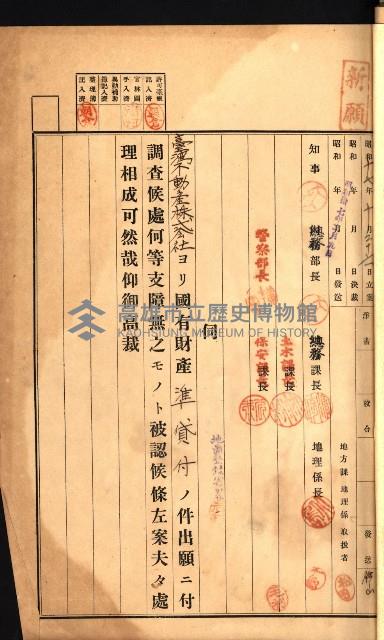 新願
昭和十七年十月三十一日立案
昭和 年 月 日決裁
昭和 年 月 日發送
淨書
校合
發送
知事
總務部長
總務課長
地理係長
地方課地理係取扱者
警察部長
土木課長
保安課長
課長
課長
伺
臺灣不動產株式會社ヨリ國有財產準貸付ノ件出願ニ付
調查候處何等支障無之モノト被認候條左案夫々處
理相成可然哉仰御高裁
許可臺帳
記入濟
官林圖
手入濟
異動補助
簿記入濟
整理簿
記入濟
高雄市立歷史博物館
KAOHSIUNG MUSEUM OF HISTORY